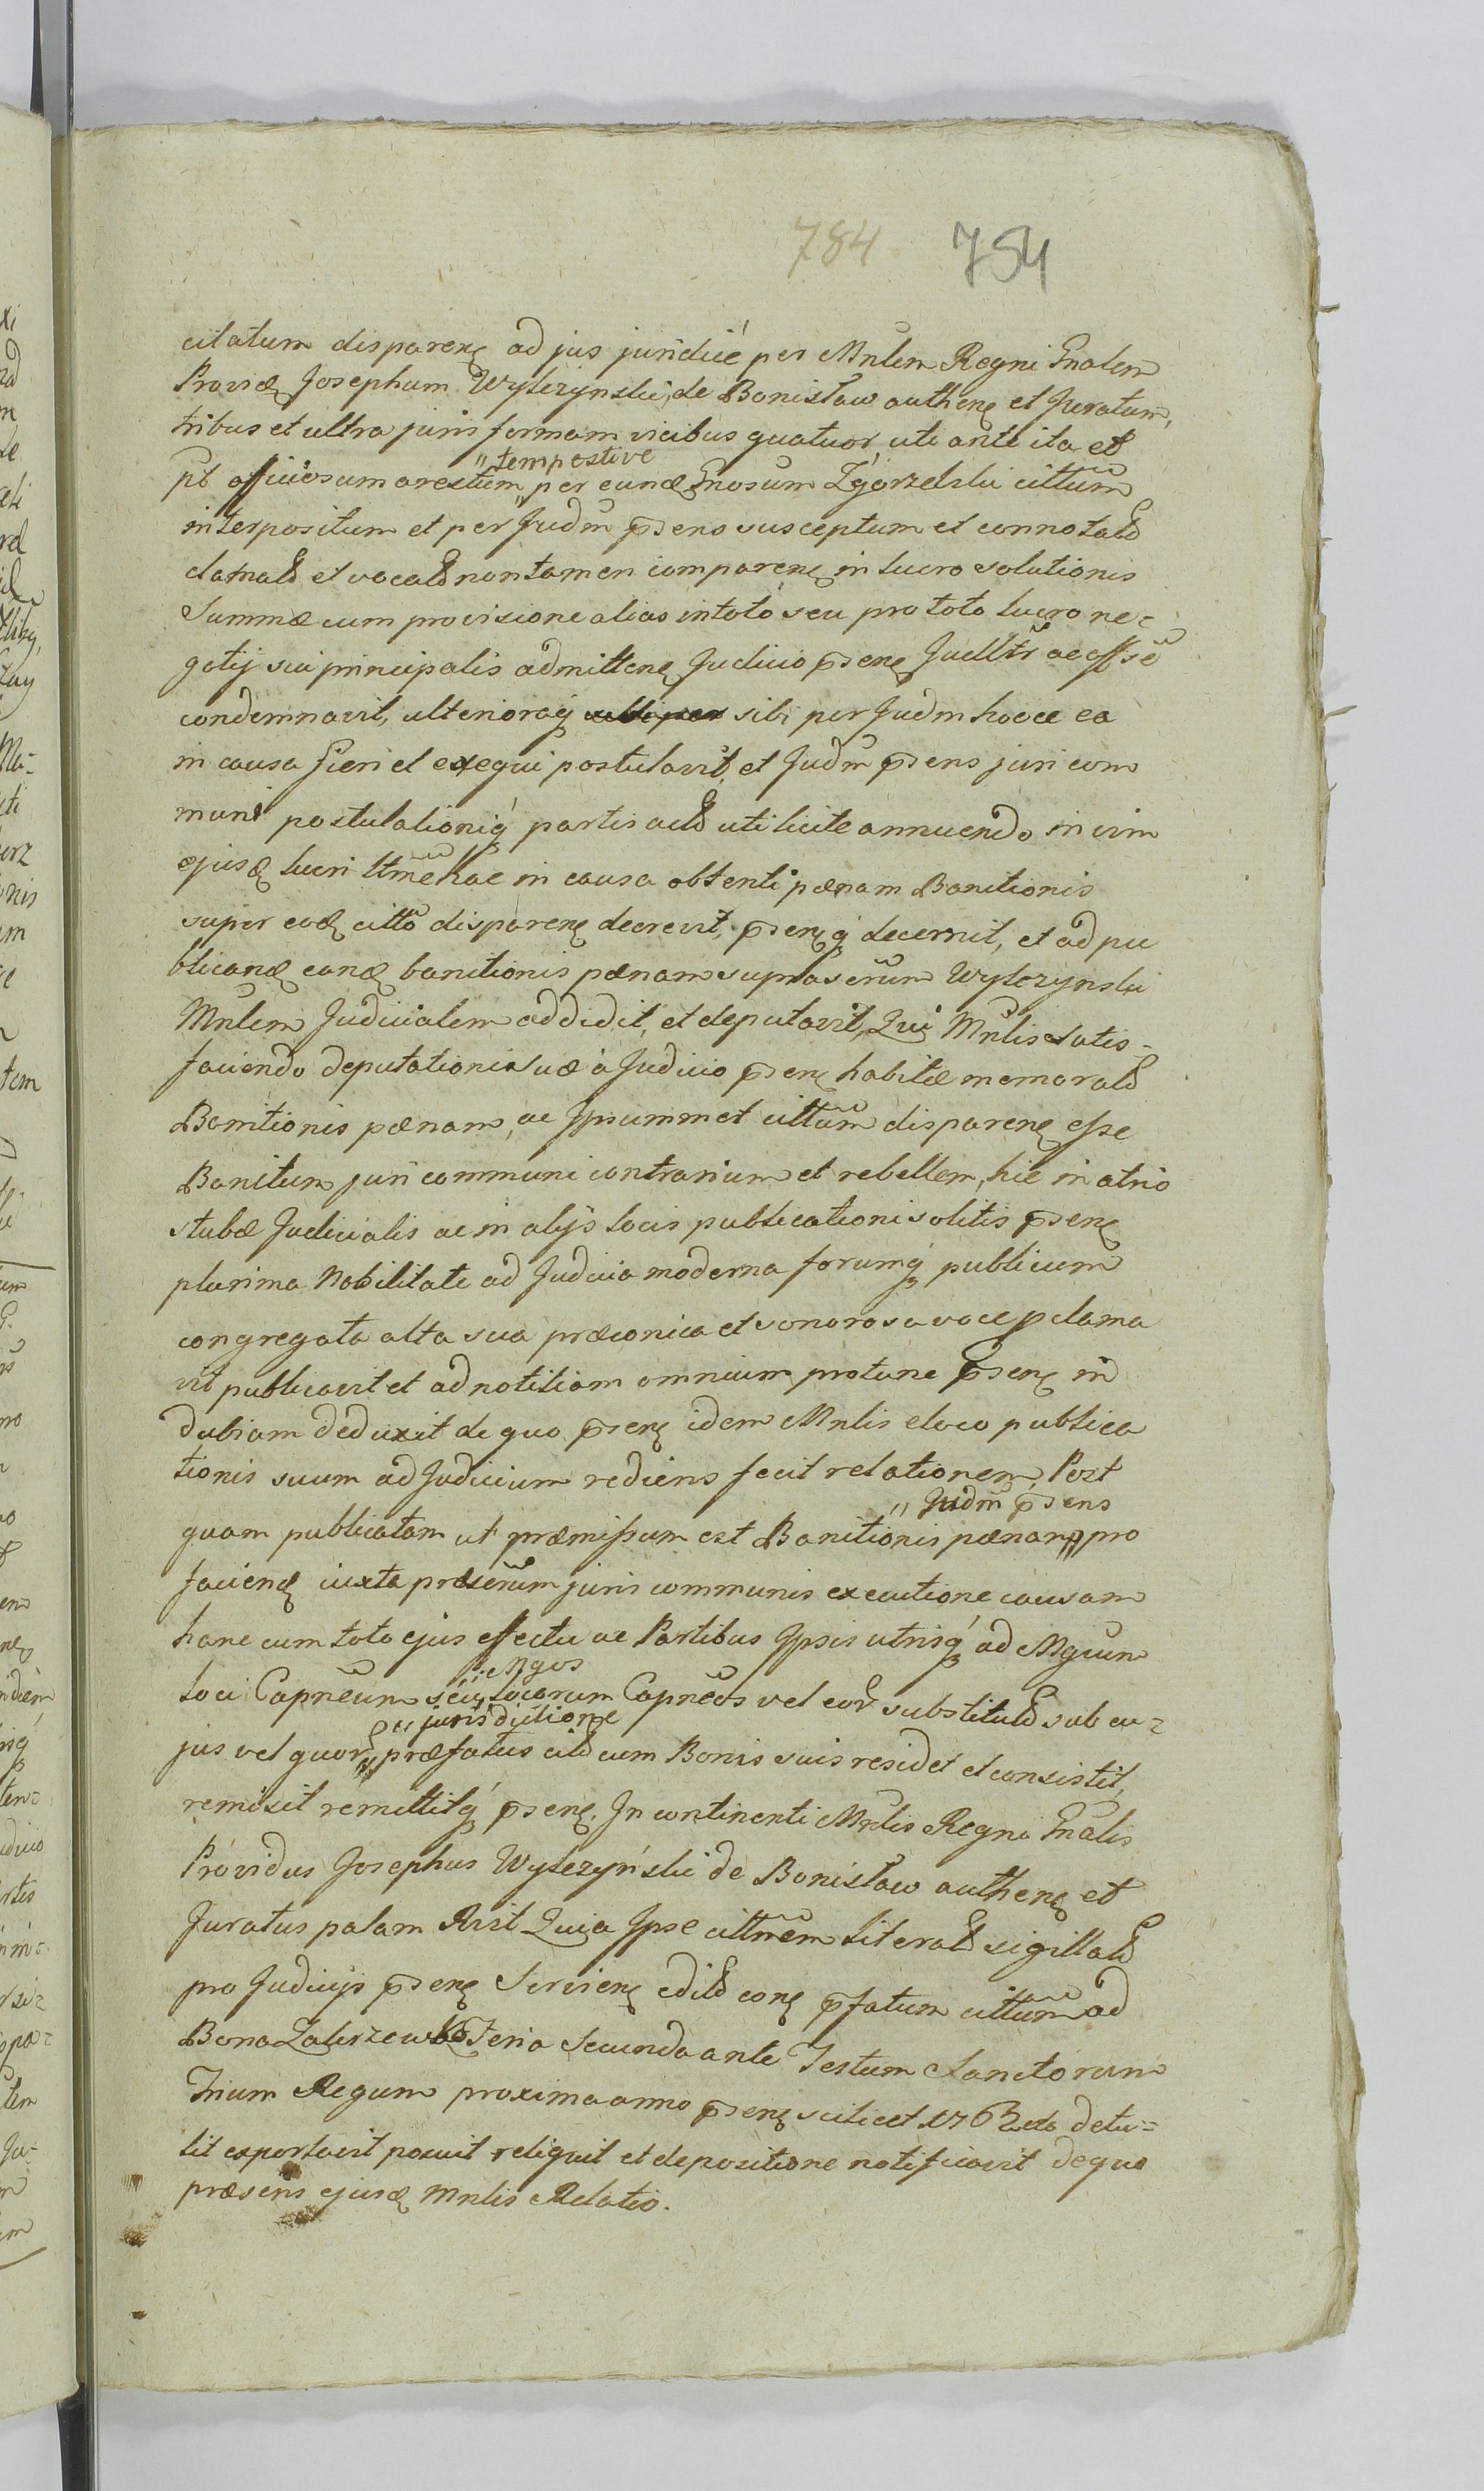 784 784
citatum disparenɇ ad jus juridicè per Mnlem Regni Gnalem
Provid Josephum Wylezynski, de Bonisław authenɇ et Juratum,
tribus et ultra juris formam vicibus quatuor, uti anti ita et
"tempestive
pt officiosum arestum "per eund Gnosum Zgorzelski cittum
interpositum et per Judm psens susceptum et connotatt
clamatt et vocatt non tamen comparenɇ in lucro solutionis
Summæ cum provisione alias in toto seu pro toto lucro ne=
gotij sui principalis admittenɇ Judicio psenɇ Judltr ac
condemnavit, ulterioraq sibi per Judm hocce ea
in causa fieri et exequi postulavit, et Judm psens juri com
muni postulationiq partis actt uti licite annuendo in vim
ejusd lucri ttme hac in causa obtenti pænam Banitionis
super eod citto disparenɇ decrevit, psenɇq decernit, et ad pu
blicand eand banitionis pænam suprasćrum Wylezynski
Mnlem Judicialem addidit, et deputavit, Qui Mnlis satis=
faciendo deputationi suæ à Judicio psenɇ habitæ memoratt
Banitionis pænam, ac Ipsummet cittum disparenɇ esse
Banitum juri communi contrarium et rebellem, hic in atrio
stubæ Judicialis ac in alijs locis publicationi solitis psenɇ
plurima Nobilitate ad Judicia moderna forumq publicum
congregata alta sua præconica et sonorosa voce pclama
vit publicavit et ad notitiam omnium protunc psenɇ in
dubiam deduxit de quo psenɇ idem Mnlis eloco publica
tionis suum ad Judicium rediens fecit relationem, Post
"Judm psens
quam publicatam ut præmissum est Banitionis pænam "pro
faciend iuxta præsćrum juris communis executione causam
hanc cum toto ejus effectu ac Partibus Ipsis utrisq ad Mgcum
"Mgcos
loci Capneum séu "locorum Capneos vel eor substitutt sub cu=
"jurisdictione
jus vel quor "præfatus citt cum Bonis suis residet et consistit,
remisit remittitq psenɇ. In continenti Mnlis Regni Gnalis
Providus Josephus Wylezyński de Bonisław authenɇ et
Juratus palam Rvit Quia Ipse cittnem literatt sigillatt
pro Judicijs psenɇ Servienɇ editt conɇ pfatum cittum ad
Bona Zakrzewko Feria Secunda ante Festum Sanctorum
Trium Regum proxima anno psenɇ scilicet 1762do detu=
lit exportavit posuit reliquit et depositione notificavit de quo
præsens ejusd Mnlis Relatio.